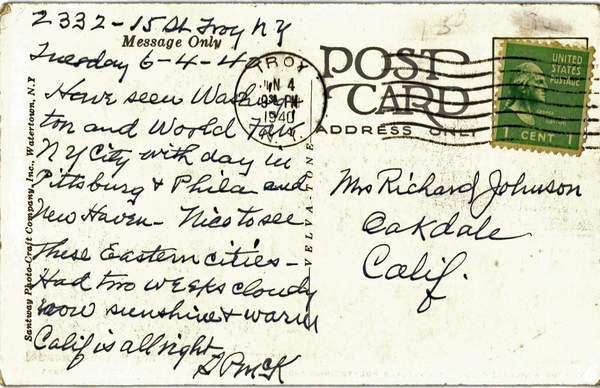 2332-15 St Troy NY
Message Only
Tuesday 6-4-40
Have seen Washing
ton and World Fair
NY City with day in
Pittsburg & Phila and
New Haven - Nice to see
these Eastern cities -
Had two weeks cloudy
now sunshine & warm
Calif is all right
Santway Photo-Craft Company, Inc., Watertown, N.Y.
VELVA-TONE
TROY
JUN 4
PM
1940
N.Y.
POST
CARD
ADDRESS ONLY
UNITED
STATES
POSTAGE
1 CENT 1
Mrs Richard Johnson
Oakdale
Calif.